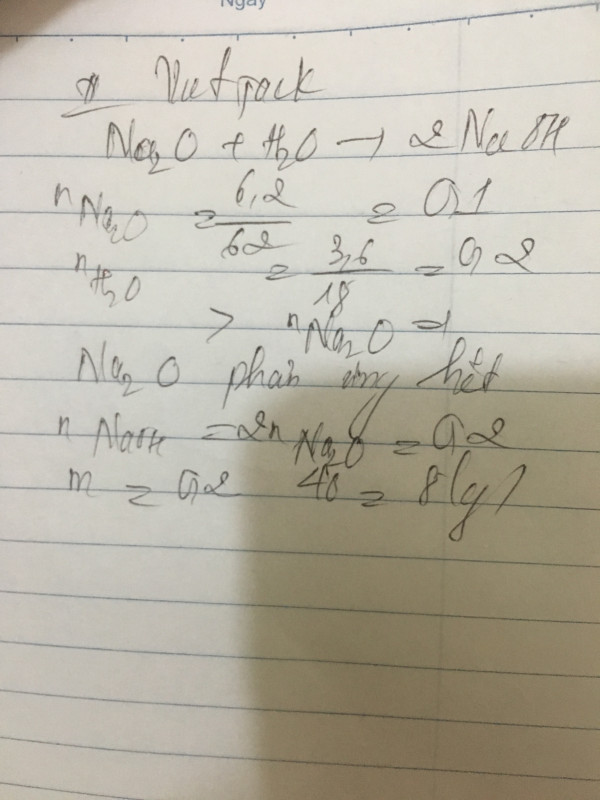 Ngày
Vietjack
Na₂O + H₂O → 2NaOH
nNa₂O = 6,2/62 = 0,1
nH₂O = 3,6/18 = 0,2
> nNa₂O ⇒
Na₂O phản ứng hết
nNaOH = 2nNa₂O = 0,2
m = 0,2 40 = 8(g)